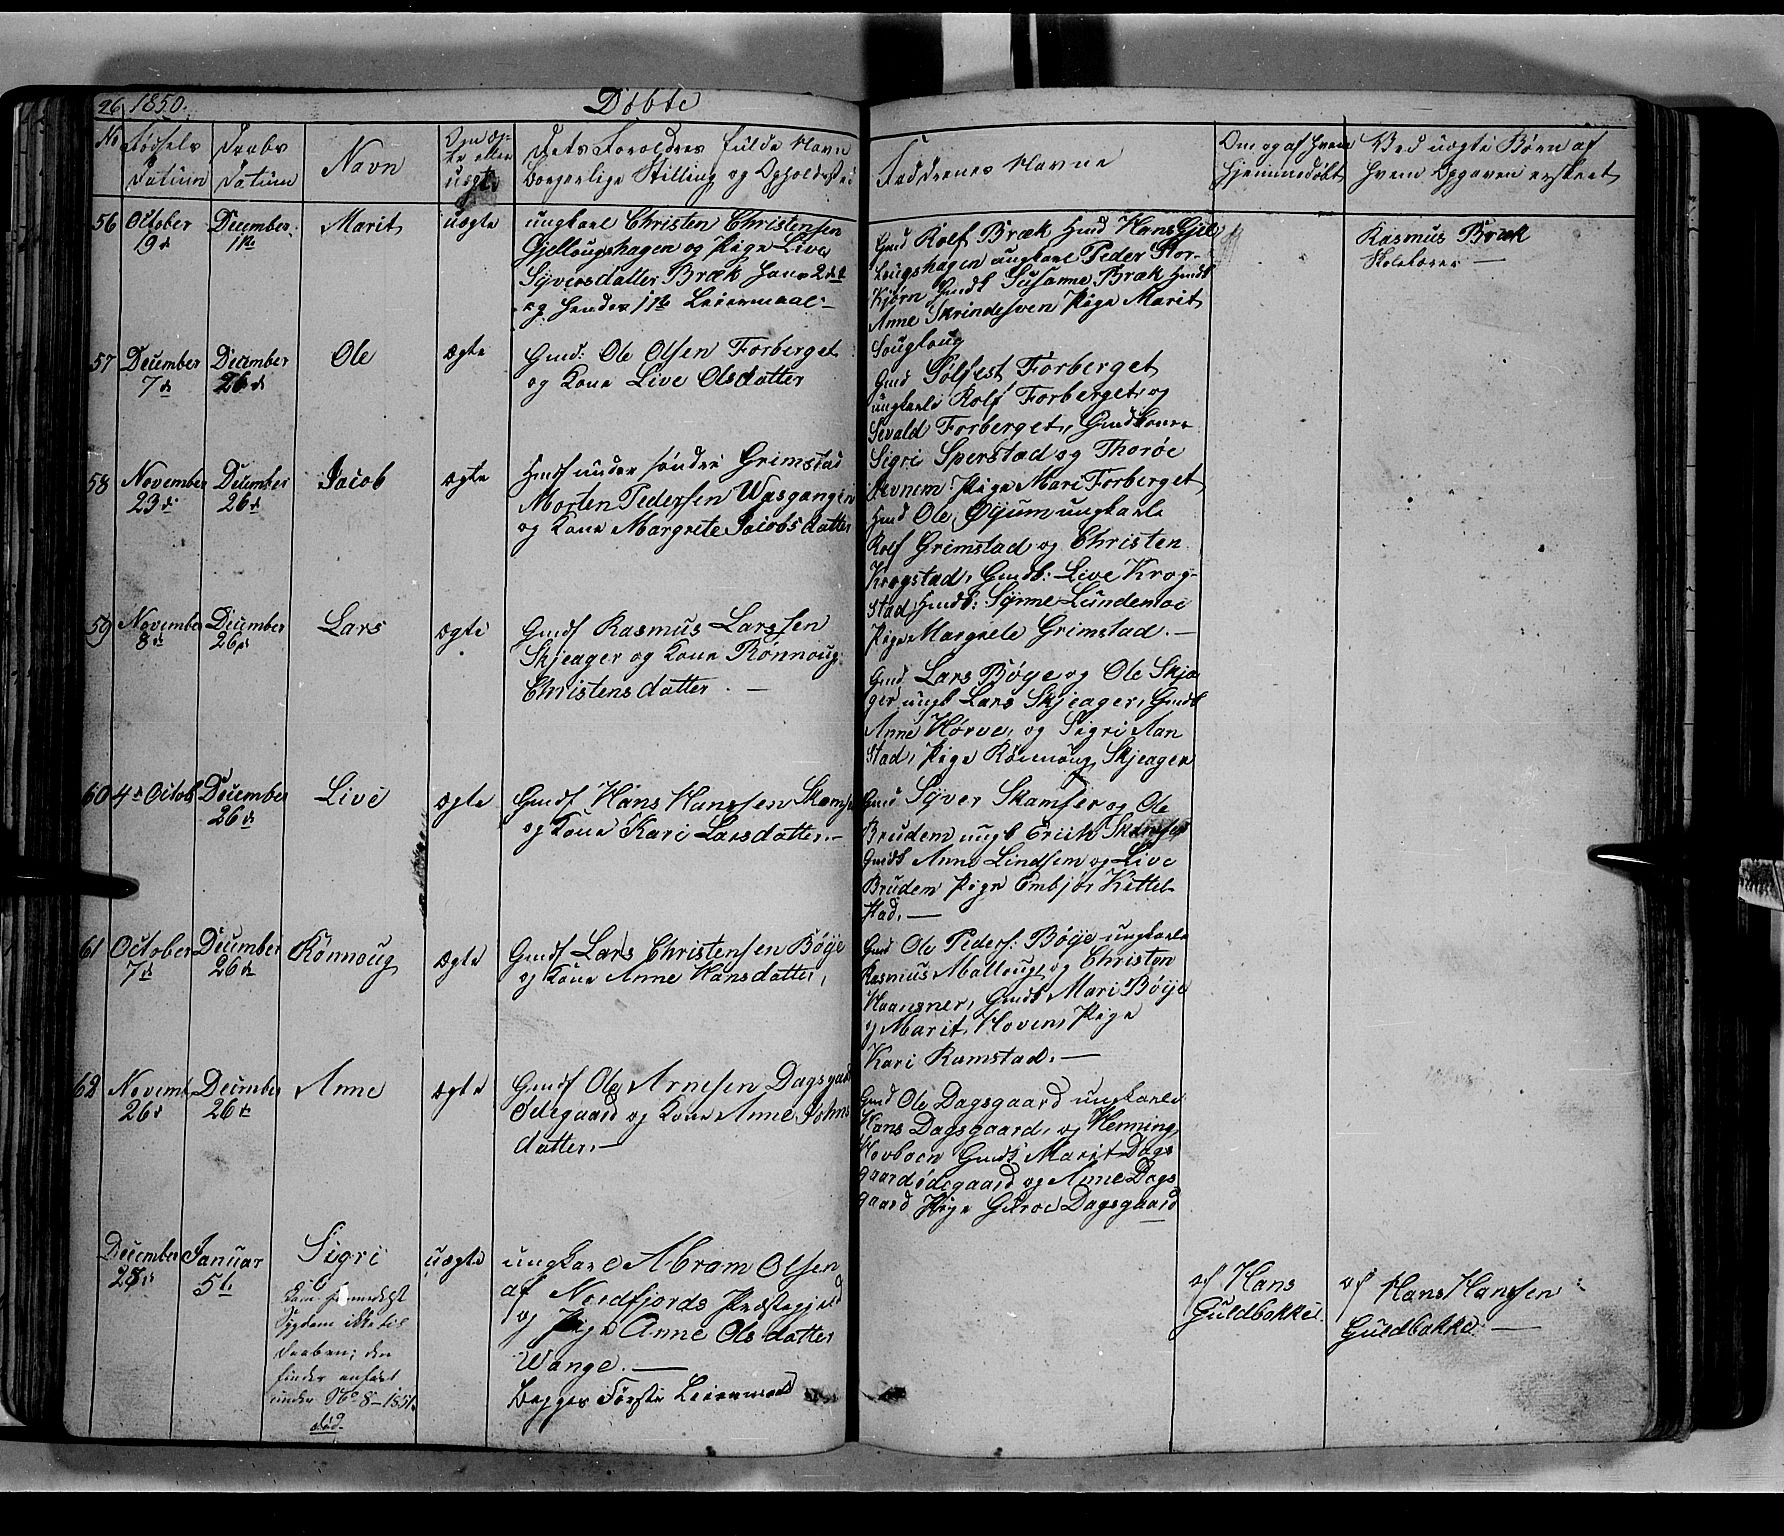 26 1850. Döbte
No Fødsels Datum Daabs Datum Navn Om ægte eller uægte Dets Foreldres fulde Navn Borgerlige Stilling og Opholdssted Faddernes Navne Om og af hvem hjemmedøbt Ved uægte Børn af hvem Opgaven er skeet
56 October 19d December 1te Marit uægte
ungkarl Christen Christensen
Gjellougshagen og Pige Live
Syversdatter Bræk hans 2det
og hendes 1te Leiermaal
Gmd Rolf Bræk Hmd Hans Gjel
lougshagen ungkarl Peder Stor-
Kjørn Gmdk Susanne Bræk Hmdk
Anne Skrindesven Pige Marit
Sougloug
Rasmus Bræk
Skolelærer —
57 December 7d December 26d Ole ægte
Gmd: Ole Olsen Forberget
og Kone Live Olsdatter
Gmd Solfest Forberget
ungkarle Rolf Forberget og
Sevald Forberget, Gmdkoner
Sigri Sperstad og Thoröe
Nevnem: Pige Mari Forberget
58 November 23d December 26d Jacob ægte
Hmd under søndre Grimstad
Morten Pederssen Wasgangen
og Kone Margrete Jacobsdatter
Hmd Ole Øyum ungkarle
Rolf Grimstad og Christen
Krogstad, Gmdk: Live Krog-
stad, Hmdk: Synne Lundemoe
Pige Margrete Grimstad. —
59 November 8d December 26d Lars ægte
Gmd Rasmus Larssen
Skjeager og Kone Rönnoug
Christensdatter. —
Gmd Lars Böye og Ole Skjea
ger ungk Lars Skjeager, Gmdk
Anne Hörve, og Sigri Aan
stad, Pige Rönnoug Skjeager
60 4de Octob December 26d Live ægte
Gmd Hans Hanssen Skamse
og Kone Kari Larsdatter. —
Gmd Syver Skamser og Ole
Brudem ungk Erick Skamser
Gmdk Anne Lindsem og Live
Brudem Pige Embjör Kittel
stad. —
61 October 7d December 26d Rönnoug ægte
Gmd Lars Christensen Böye
og Kone Anne Hansdatter,
Gmd Ole Peders: Böye ungkarle
Rasmus Malloug, og Christen
Haansner, Gmdk Mari Böye
og Marit Hoven Pige
Kari Ramstad. —
62 Novemb 26d December 26d Anne ægte
Gmd Ole Arnesen Dagsgaard
Ödegaard og Kone Anne Johns
datter. —
Gmd Ole Dagsgaard ungkarle
Hans Dagsgaard, og Henning
Hovboen Gmdk Marit Dags
gaardödegaard og Anne Dags
gaard Pige Guroe Dagsgaard
December 28de Januar 5te Sigri uægte
Kom formedelst
Sygdom ikke til
Daaben; den
findes anført
under No 8 – 1851.
död
ungkarl Abram Olsen
af Nordfjords Præstegjeld
og Pige Anne Olsdatter
Wange. —
Begges Første Leiermaal
af Hans
Guldbakke.
af Hans Hanssen
Guldbakke. —